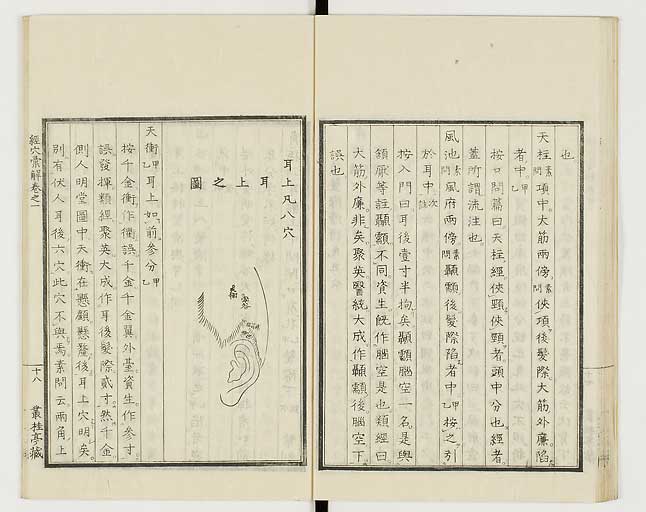 也
天柱素問項中大筋兩傍素問俠項後髮際大筋外廉陷
者中甲乙
按口問篇曰天柱經俠頸俠頸者頭中分也經者
蓋所謂流注也
風池素問風府兩傍素問顳顬後髮際陷者中甲乙按之引
於耳中次註
按入門曰耳後壹寸半拘矣顳顬腦空一名是與
頷厭等註顳顬不同資生既作腦空是也類經曰
大筋外廉非矣聚英醫統大成作顳顬後腦空下
誤也
耳上凡八穴
耳上之圖
天衝
率谷
天衝甲乙耳上如前參分甲乙
按千金衝作衢誤千金千金翼外臺資生作參寸
誤發揮類經聚英大成作耳後髮際貳寸然千金
側人明堂圖中天衝在懸顱懸釐後耳上穴明矣
別有伏人耳後六穴此穴不與焉素問云兩角上
經穴彙解卷之一
十八
叢桂亭藏